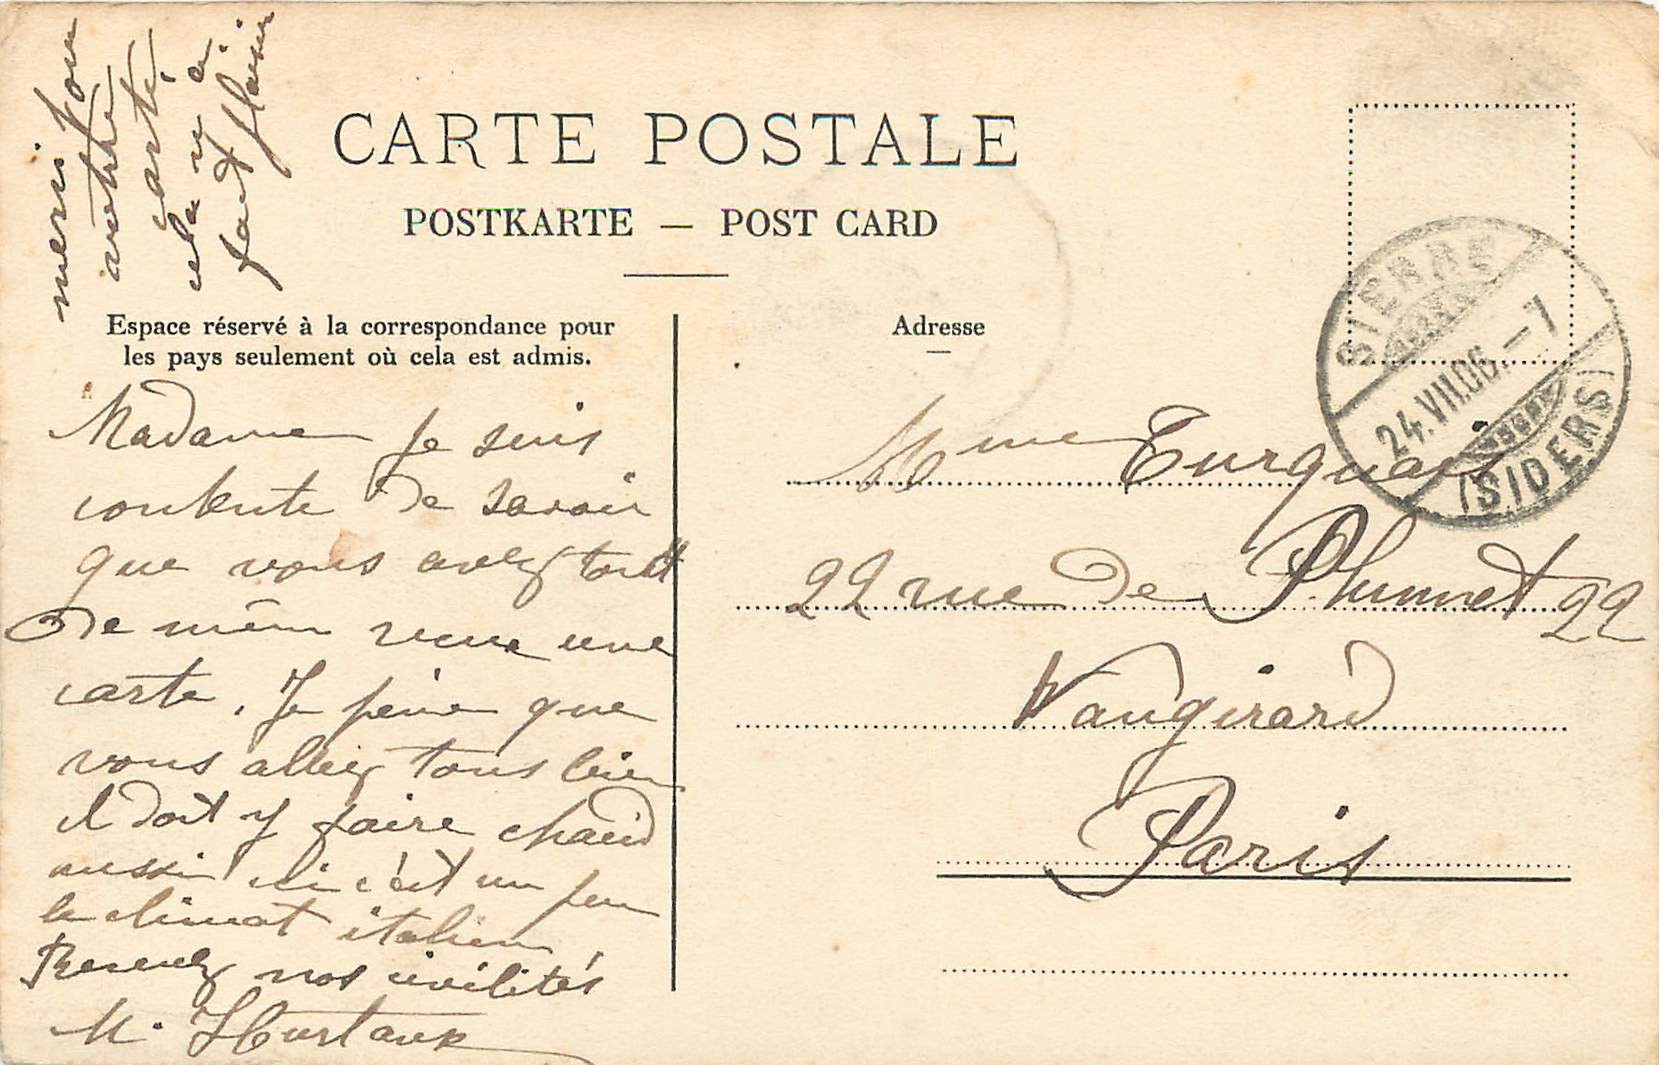 merci pour
votre
carte,
cela m'a
fait plaisir
CARTE POSTALE
POSTKARTE — POST CARD
Espace réservé à la correspondance pour
les pays seulement où cela est admis.
Adresse
SIERRE
24.VII.06.–7
(SIDERS)
Madame je suis
contente de savoir
que vous avez tout
de même reçue une
carte. Je pense que
vous alliez tous bien
il doit y faire chaud
aussi ici c'est un peu
le climat italien,
Recevez nos civilités
M. Hurtaux
Mme Turquais
22 rue de Plumet 22
Vaugirard
Paris